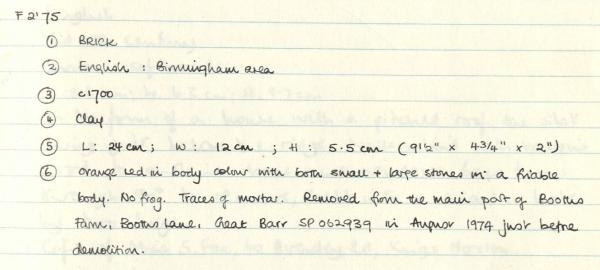 F2'75
① BRICK
② English : Birmingham area
③ c1700
④ Clay
⑤ L : 24 cm ; W : 12 cm ; H : 5.5 cm (9½" x 4¾" x 2")
⑥ Orange red in body colour with both small + large stones in a friable
body. No frog. Traces of mortar. Removed from the main part of Booths
Farm, Booths Lane, Great Barr SP 062939 in August 1974 just before
demolition.